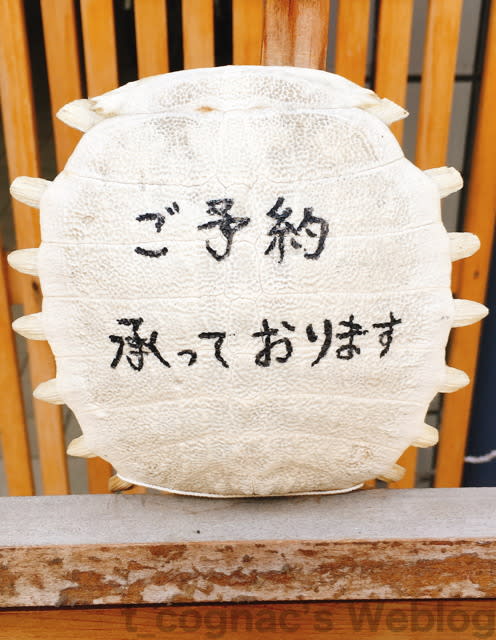 ご予約
承っております
t_cognac's Weblog